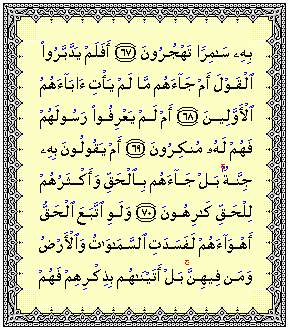 بِهِۦ سَـٰمِرًا تَهْجُرُونَ ﴿٦٧﴾ أَفَلَمْ يَدَّبَّرُوا۟
ٱلْقَوْلَ أَمْ جَآءَهُم مَّا لَمْ يَأْتِ ءَابَآءَهُمُ
ٱلْأَوَّلِينَ ﴿٦٨﴾ أَمْ لَمْ يَعْرِفُوا۟ رَسُولَهُمْ
فَهُمْ لَهُۥ مُنكِرُونَ ﴿٦٩﴾ أَمْ يَقُولُونَ بِهِۦ
جِنَّةٌۢ ۚ بَلْ جَآءَهُم بِٱلْحَقِّ وَأَكْثَرُهُمْ
لِلْحَقِّ كَـٰرِهُونَ ﴿٧٠﴾ وَلَوِ ٱتَّبَعَ ٱلْحَقُّ
أَهْوَآءَهُمْ لَفَسَدَتِ ٱلسَّمَـٰوَٰتُ وَٱلْأَرْضُ
وَمَن فِيهِنَّ ۚ بَلْ أَتَيْنَـٰهُم بِذِكْرِهِمْ فَهُمْ